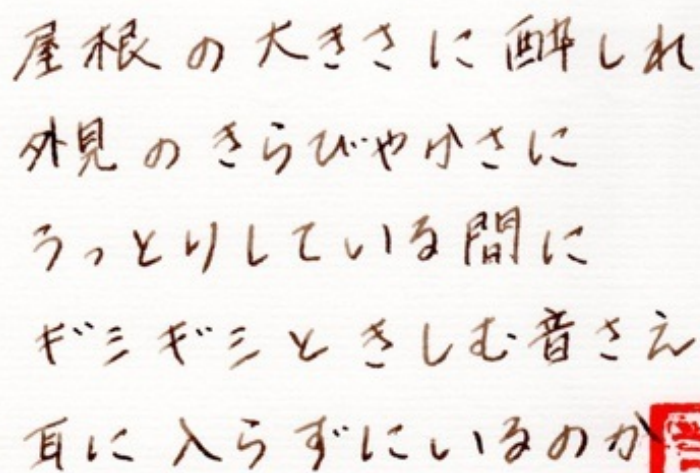 屋根の大きさに酔しれ
外見のきらびやかさに
うっとりしている間に
ギシギシときしむ音さえ
耳に入らずにいるのか